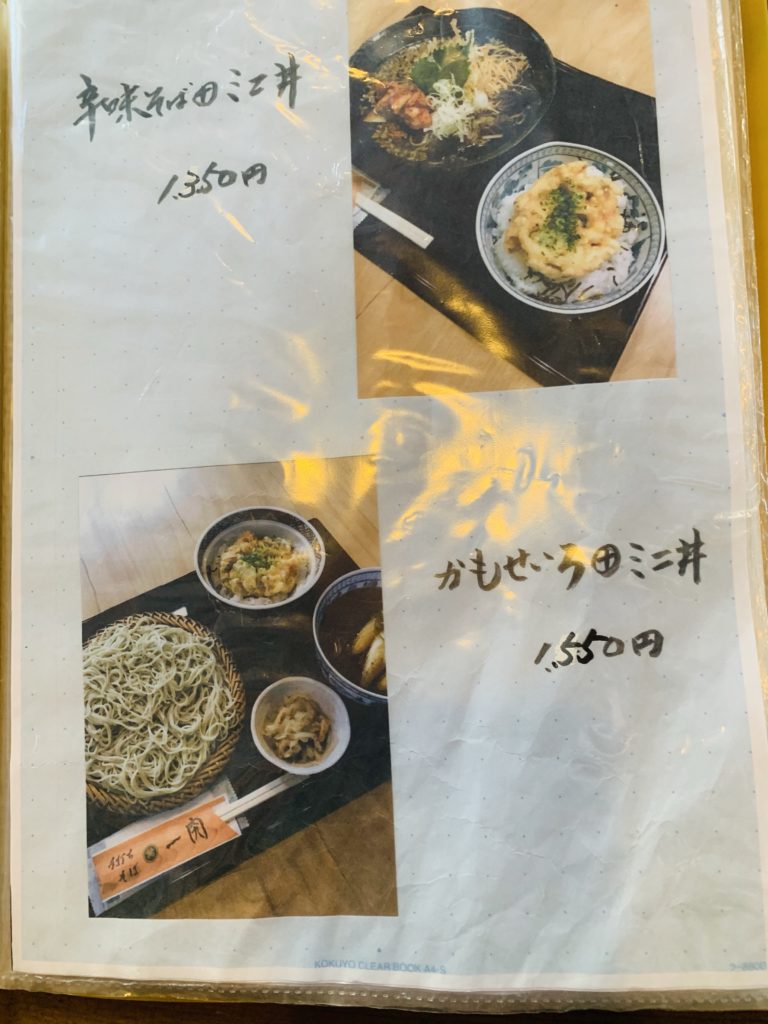 辛味そば田ミニ丼
1.350円
かもせいろ田ミニ丼
1.550円
手打ち
そば
KOKUYO CLEAR BOOK A4-S